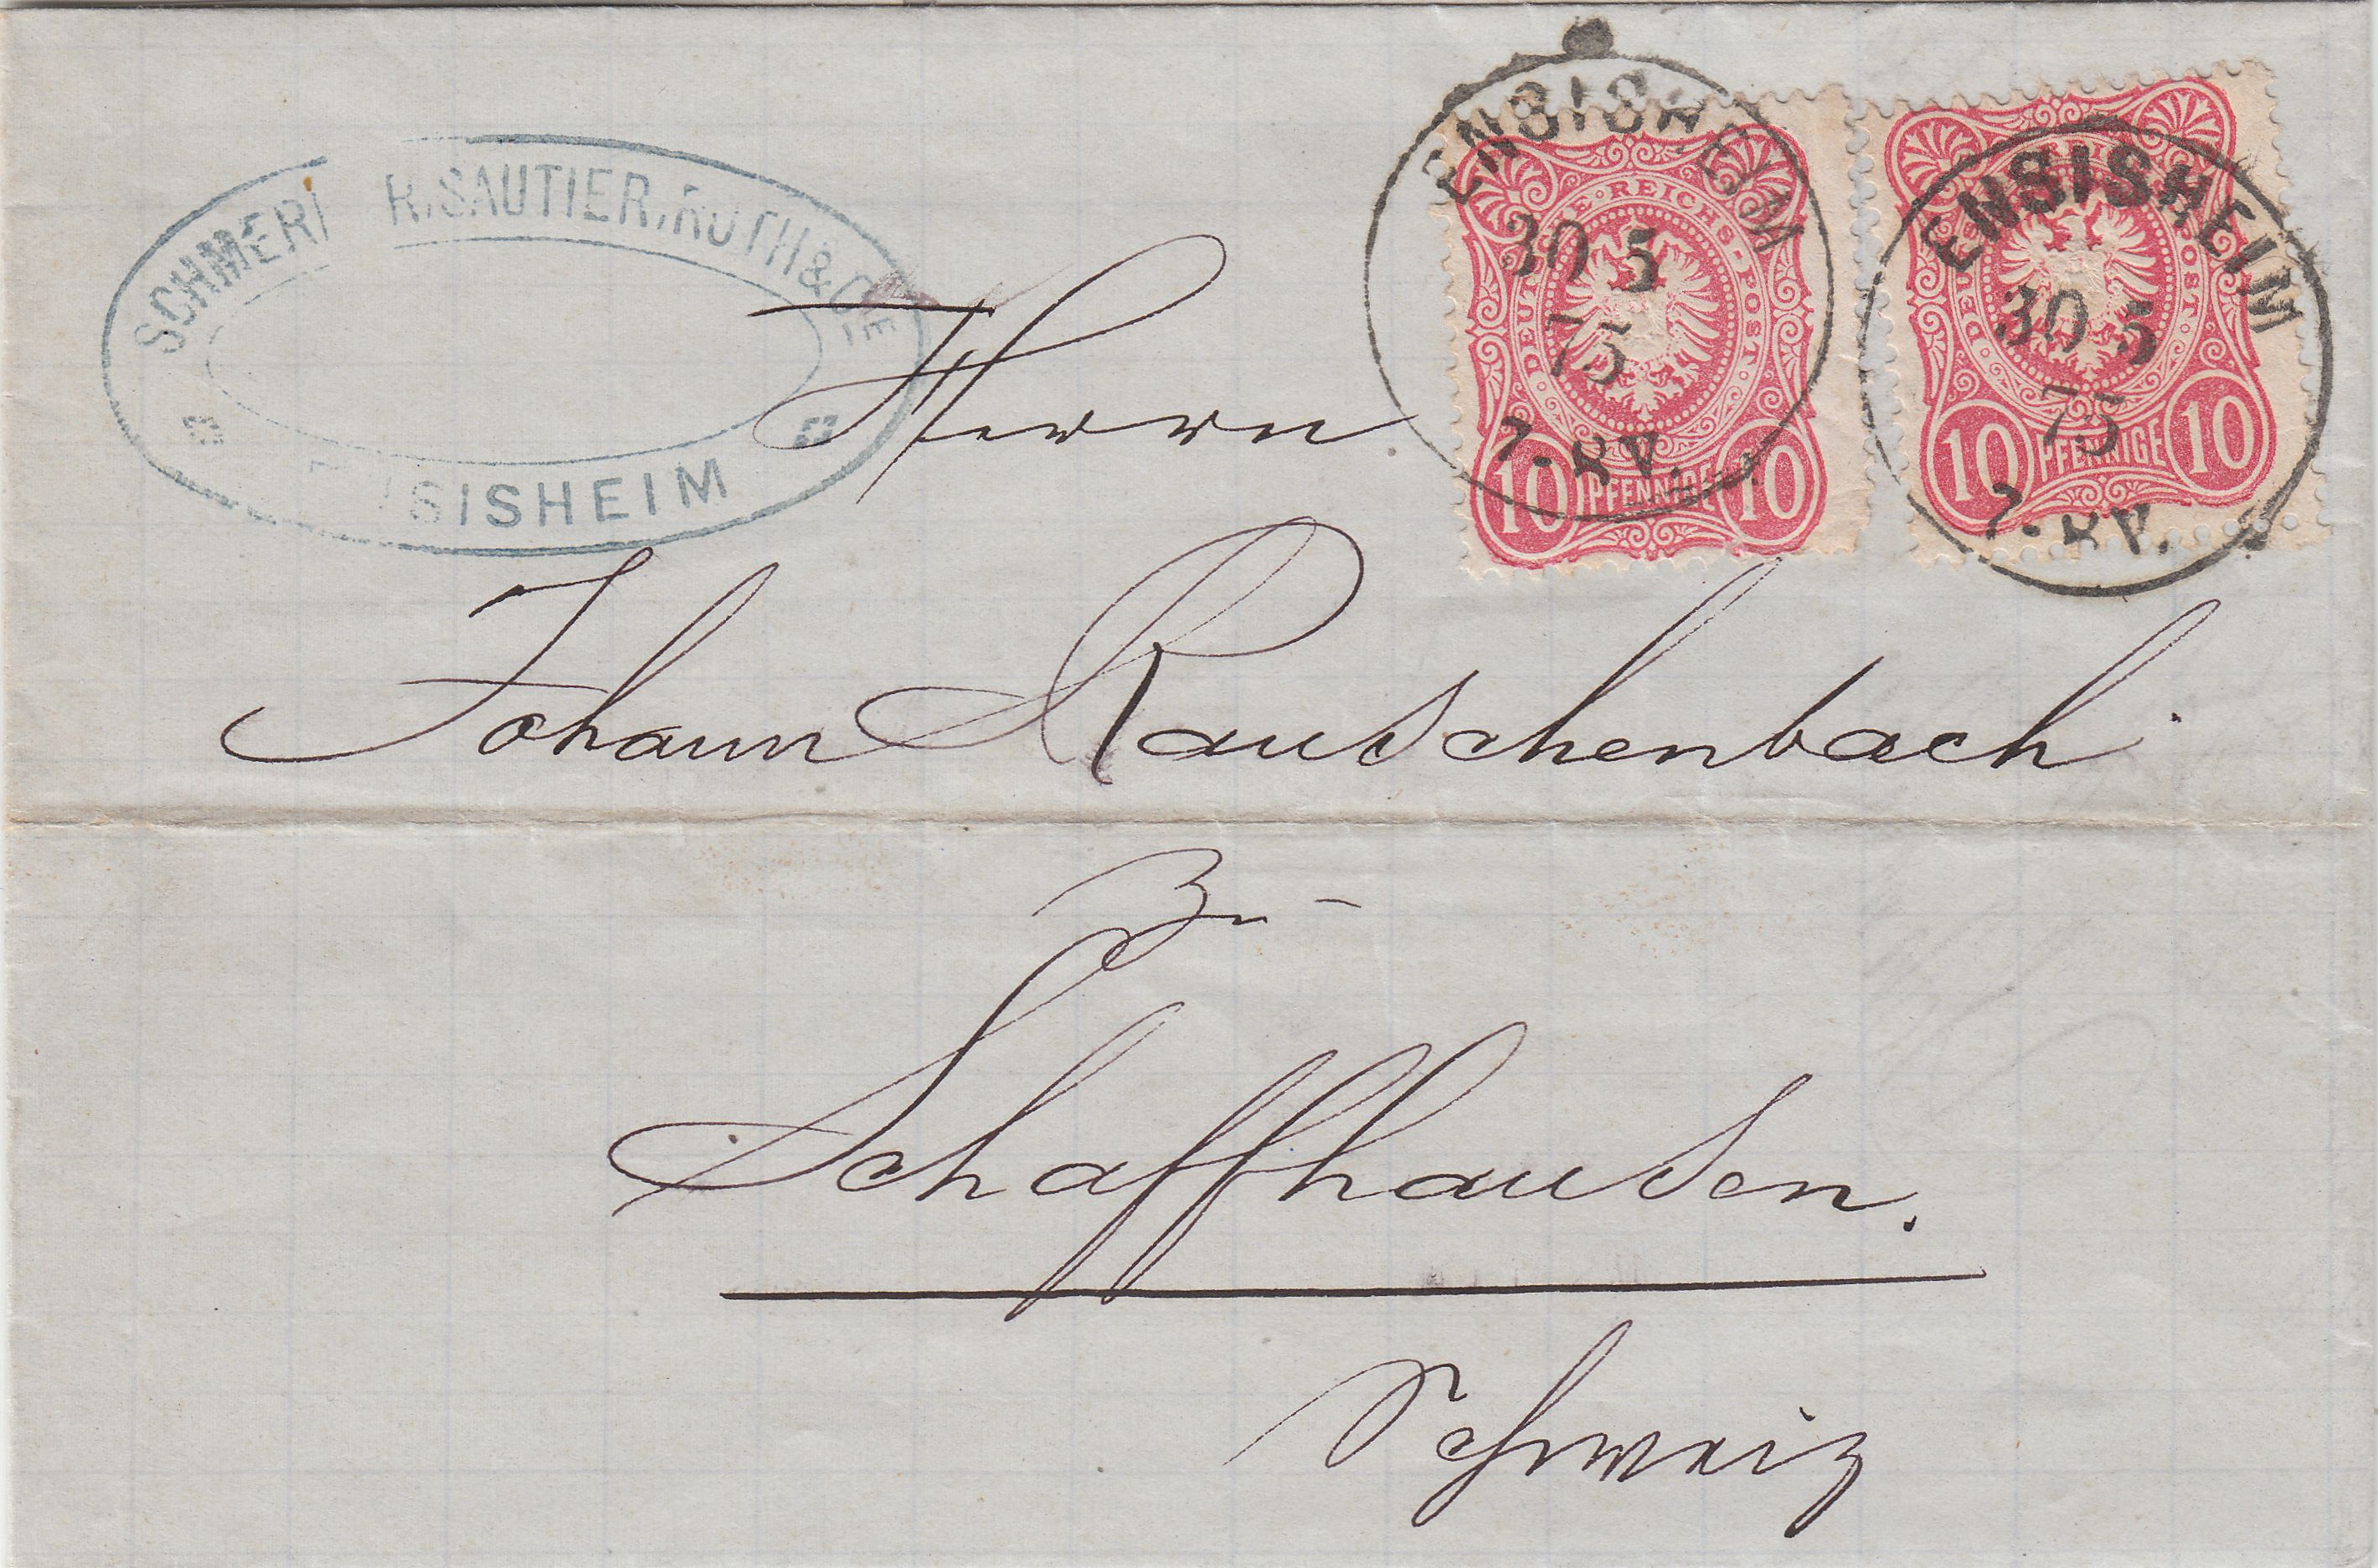 SCHMERBER, SAUTIER, RUTH & CIE
ENSISHEIM
ENSISHEIM
30 5
75
7-8V.
DEUTSCHE REICHS-POST
10 PFENNIGE 10
ENSISHEIM
30 5
75
7-8V.
DEUTSCHE REICHS-POST
10 PFENNIGE 10
Herrn
Johann Rauschenbach
Zu-
Schaffhausen.
Schweiz